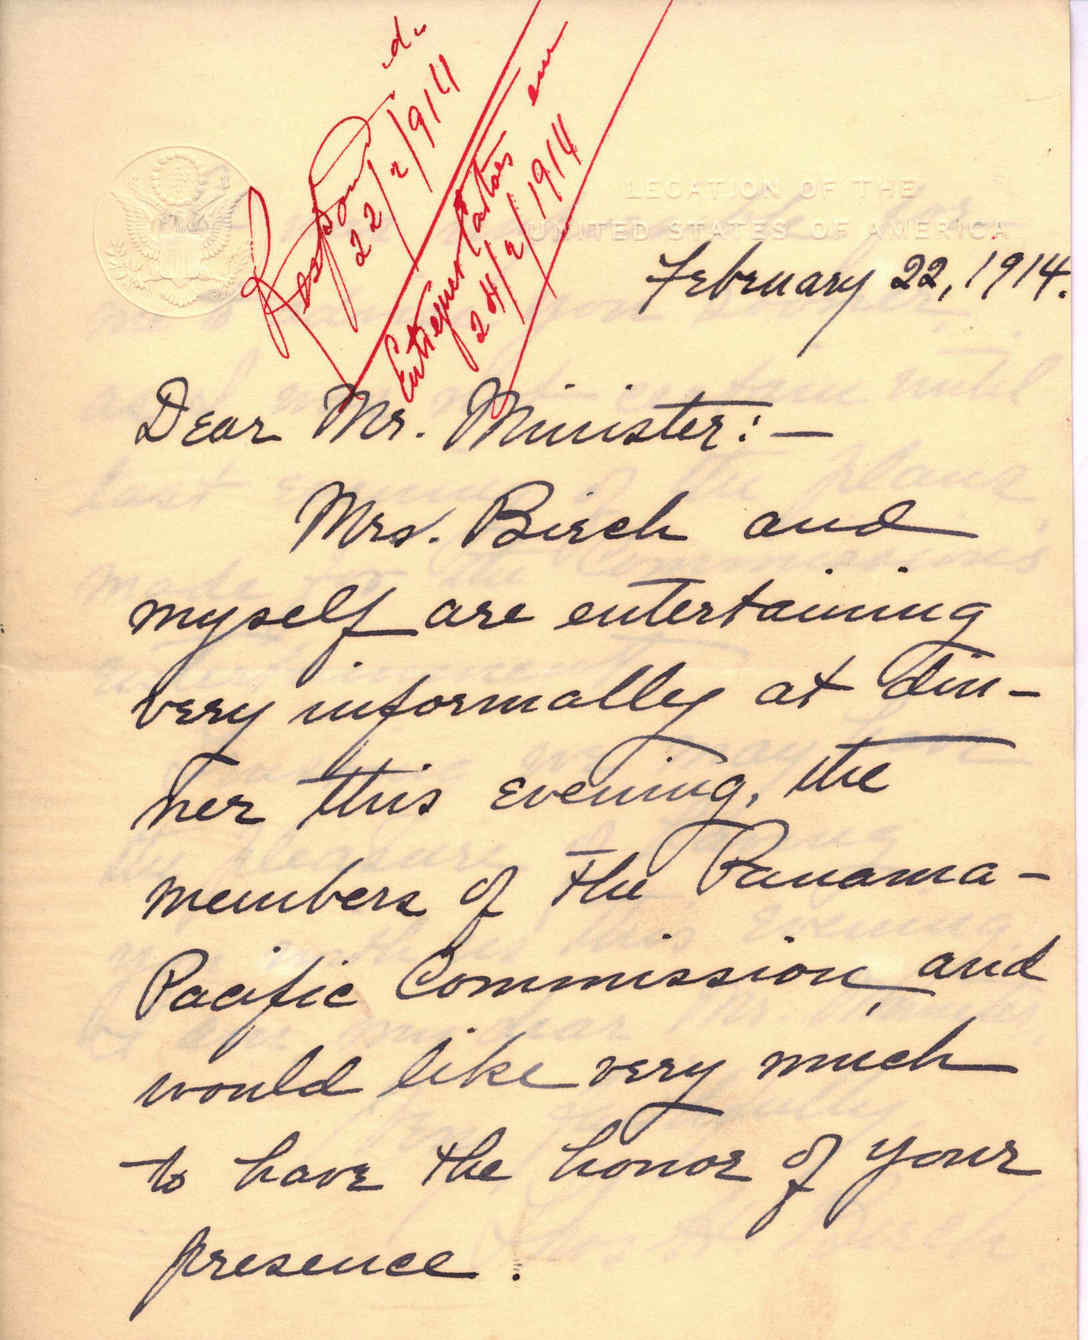 Respond d.
22/2/1914
Entreguei cartões em
24/2/1914
LEGATION OF THE
UNITED STATES OF AMERICA
February 22, 1914.
Dear Mr. Minister:—
Mrs. Birch and
myself are entertaining
very informally at din-
ner this evening, the
members of the Panama-
Pacific Commission, and
would like very much
to have the honor of your
presence.